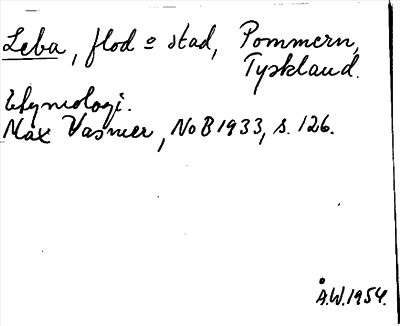 Leba, flod o stad, Pommern,
Tyskland.
Etymologi.
Max Vasmer, NoB 1933, s. 126.
Å.W. 1954.